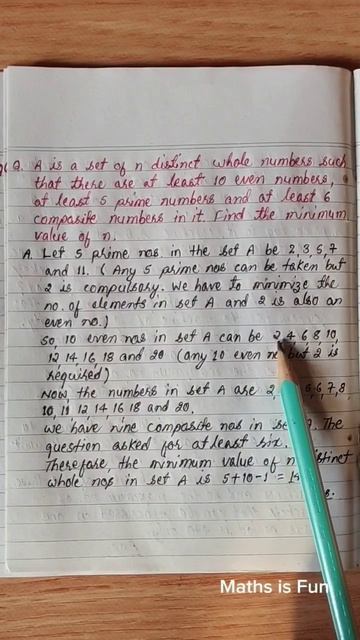 Q. A is a set of n distinct whole numbers such
that there are at least 10 even numbers,
at least 5 prime numbers and at least 6
composite numbers in it. Find the minimum
value of n.
A. Let 5 prime nos. in the set A be 2, 3, 5, 7
and 11. (Any 5 prime nos can be taken but
2 is compulsory. We have to minimize the
no. of elements in set A and 2 is also an
even no.)
So, 10 even nos in set A can be 2, 4 6 8 10,
12 14 16 18 and 20 (any 10 even but 2 is
required)
Now the numbers in set A are 2, 5, 6, 7, 8,
10, 11 12 14 16 18 and 20.
we have nine composite nos in The
question asked for atleast six.
Therefore, the minimum value of n
whole nos in set A is 5+10-1 =
Maths is Fun